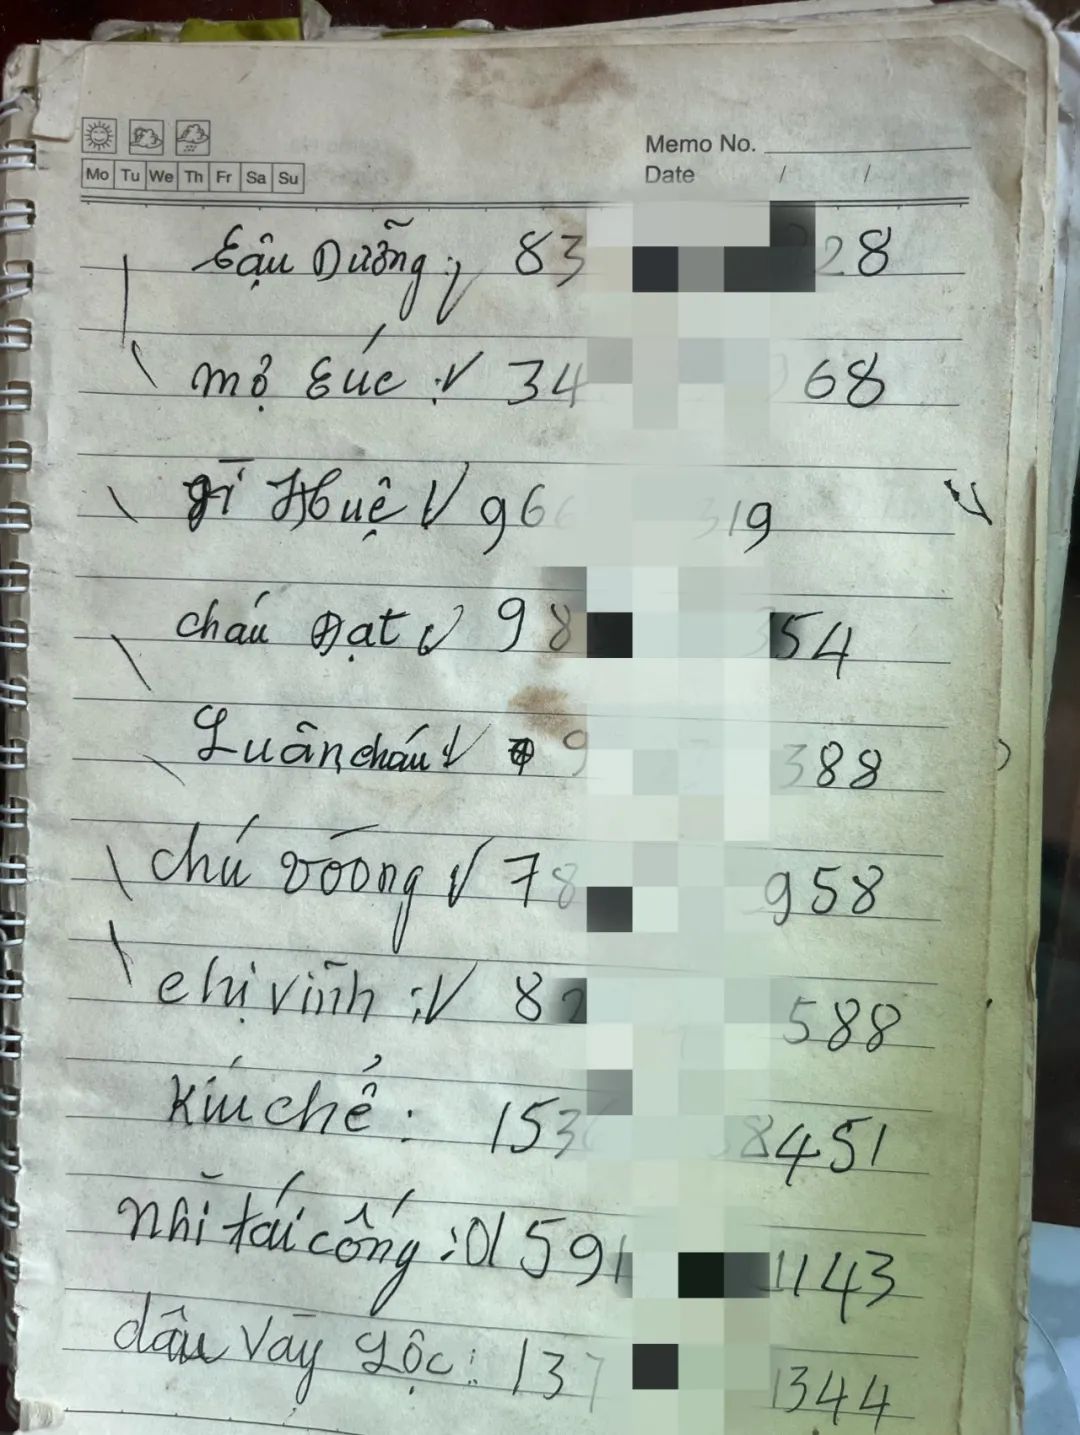 Memo No.
Mo Tu We Th Fr Sa Su
Date / /
Cậu Dưỡng : 83 28
mợ Cúc : 34 68
gì Huệ 966 319
cháu Đạt 98 354
Luân cháu 9 388
chú vōōng 78 958
chị vĩnh : 82 588
Kíu chể : 153 8451
nhĩ tái cống : 01591 1143
dâu Vāy Lộc : 137 1344